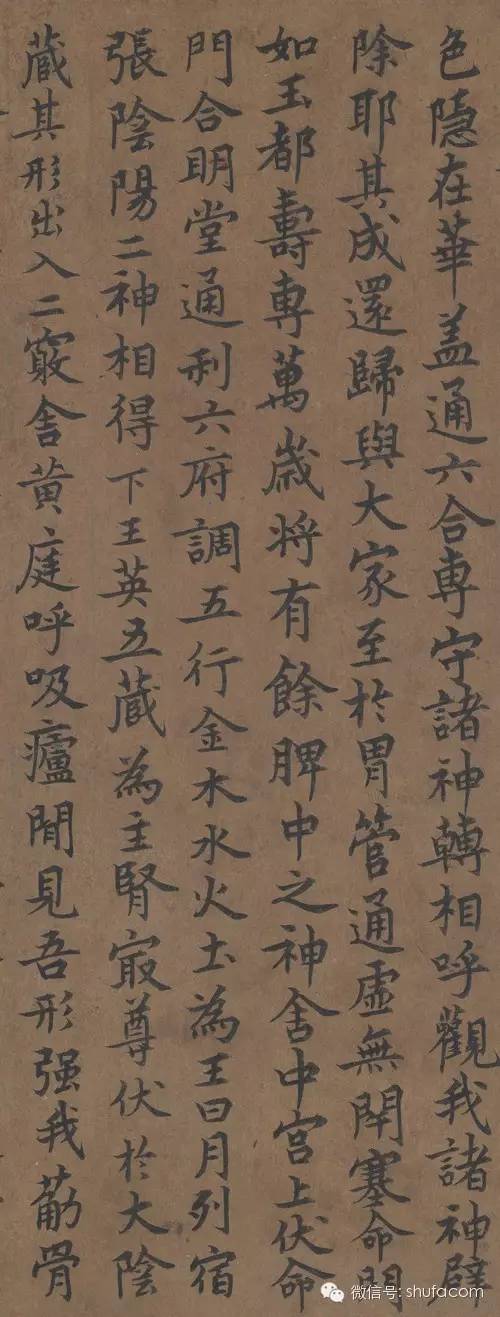 色隱在華盖通六合專守諸神轉相呼觀我諸神辟
除耶其成還歸與大家至於胃管通虛無閇塞命門
如玉都壽專萬歲将有餘脾中之神舍中宮上伏命
門合明堂通利六府調五行金木水火土為王日月列宿
張陰陽二神相得下王英五藏為主腎㝡尊伏於大陰
藏其形出入二竅舍黃庭呼吸廬間見吾形强我葥骨
微信号: shufacom